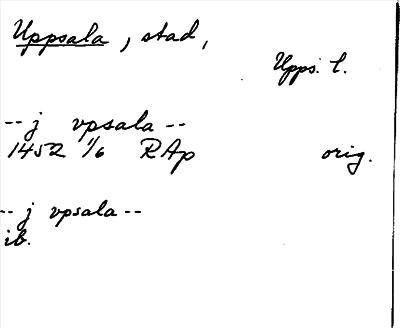 Uppsala, stad,
Upps. l.
-- j vpsala --
1452 1/6 RAp orig.
-- j vpsala --
ib.